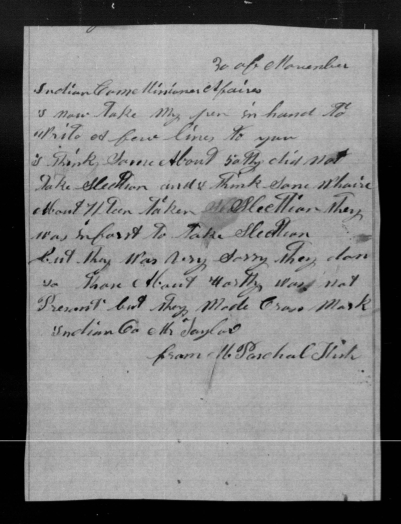 30 of November
Indian Come Missioner Afaires
I now take My pen in hand to
Write a few lines to you
I think Some About 50tty did not
take Slecttion and I think Some Whaire
About 17teen taken Slecttion they
was inforst to take Slecttion
but they Was Very Sorry they don
so thare About 40rtty was not
Present but they Made Cross Mark
Indian Co Mr Taylor
from Paschal Fish